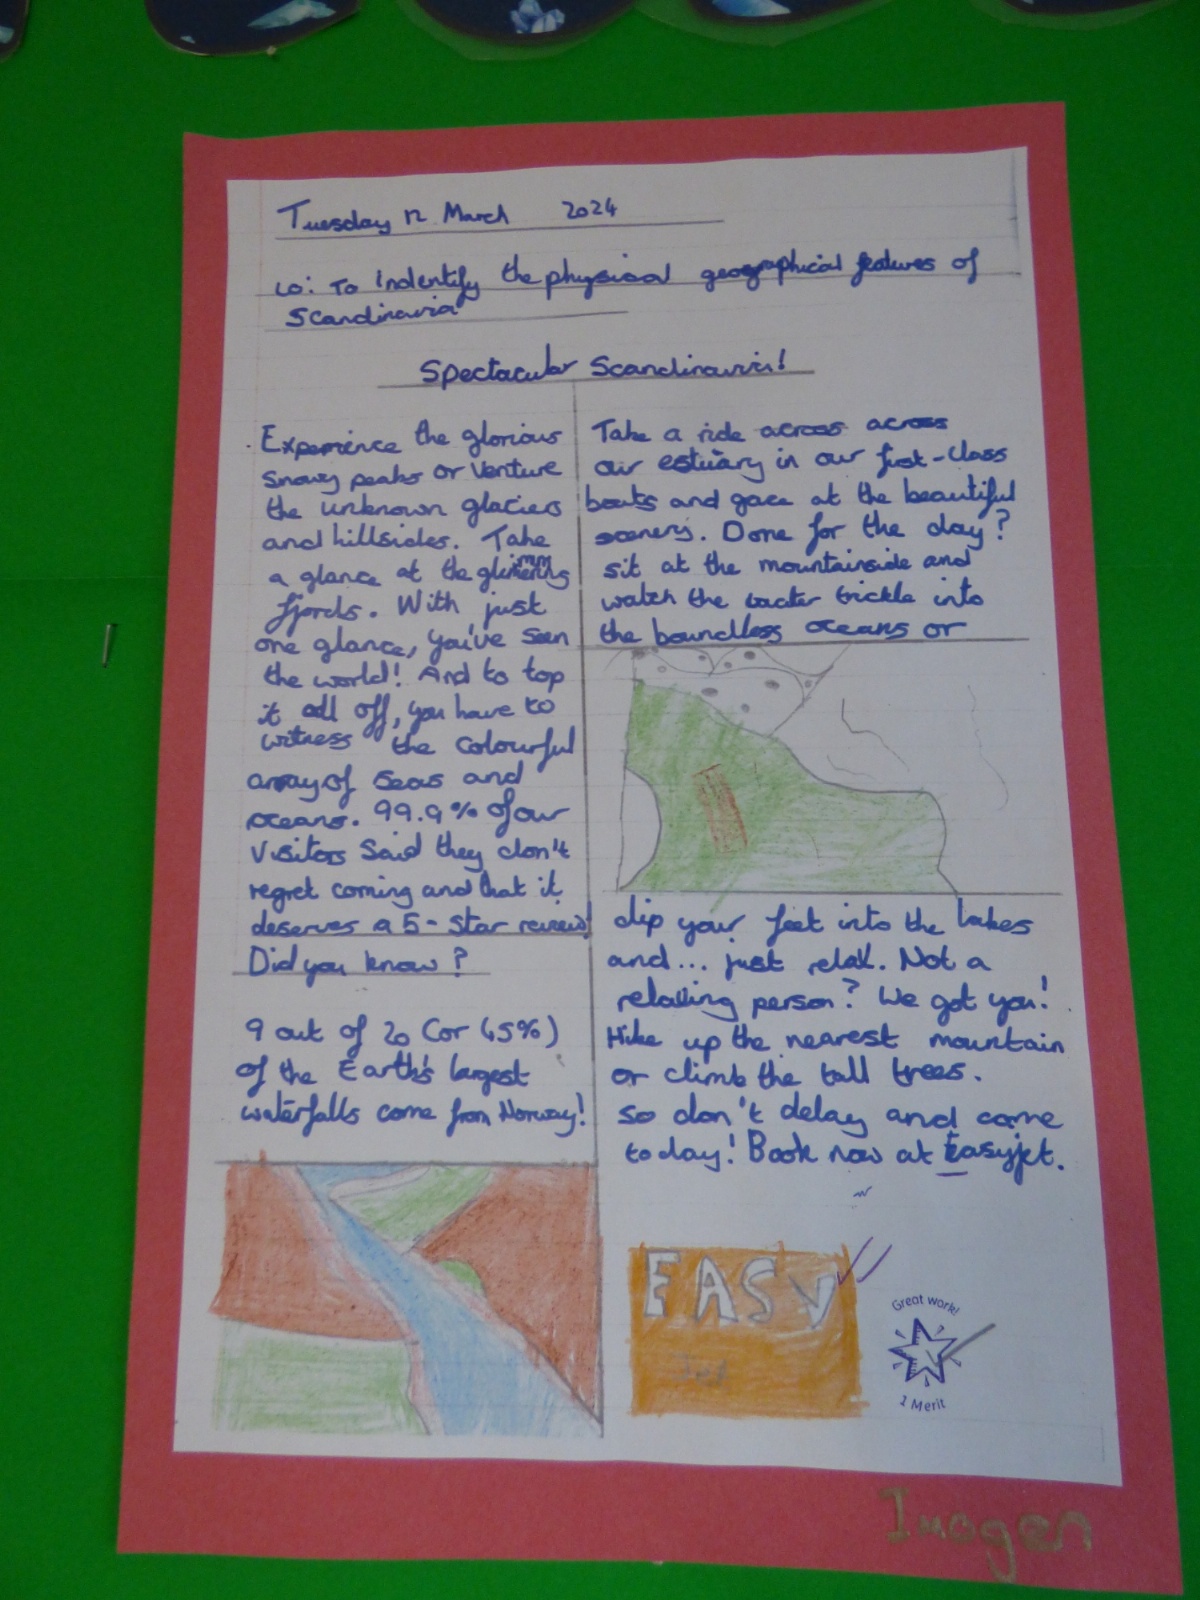 Tuesday 12 March 2024
LO: To indentify the physical geographical features of
Scandinavia
Spectacular Scandinavia!
Experience the glorious
snowy peaks or venture
the unknown glaciers
and hillsides. Take
a glance at the glimmering
fjords. With just
one glance, you've seen
the world! And to top
it all off, you have to
witness the colourful
array of seas and
oceans. 99.9% of our
visitors said they don't
regret coming and that it
deserves a 5-star review!
Did you know?
9 out of 20 (or 45%)
of the Earth's largest
waterfalls come from Norway!
Take a ride across across
our estuary in our first-class
boats and gaze at the beautiful
scenery. Done for the day?
sit at the mountainside and
watch the water trickle into
the boundless oceans or
dip your feet into the lakes
and... just relax. Not a
relaxing person? We got you!
Hike up the nearest mountain
or climb the tall trees.
so don't delay and come
today! Book now at Easyjet.
EASY
Jet
Great work!
1 Merit
Imogen